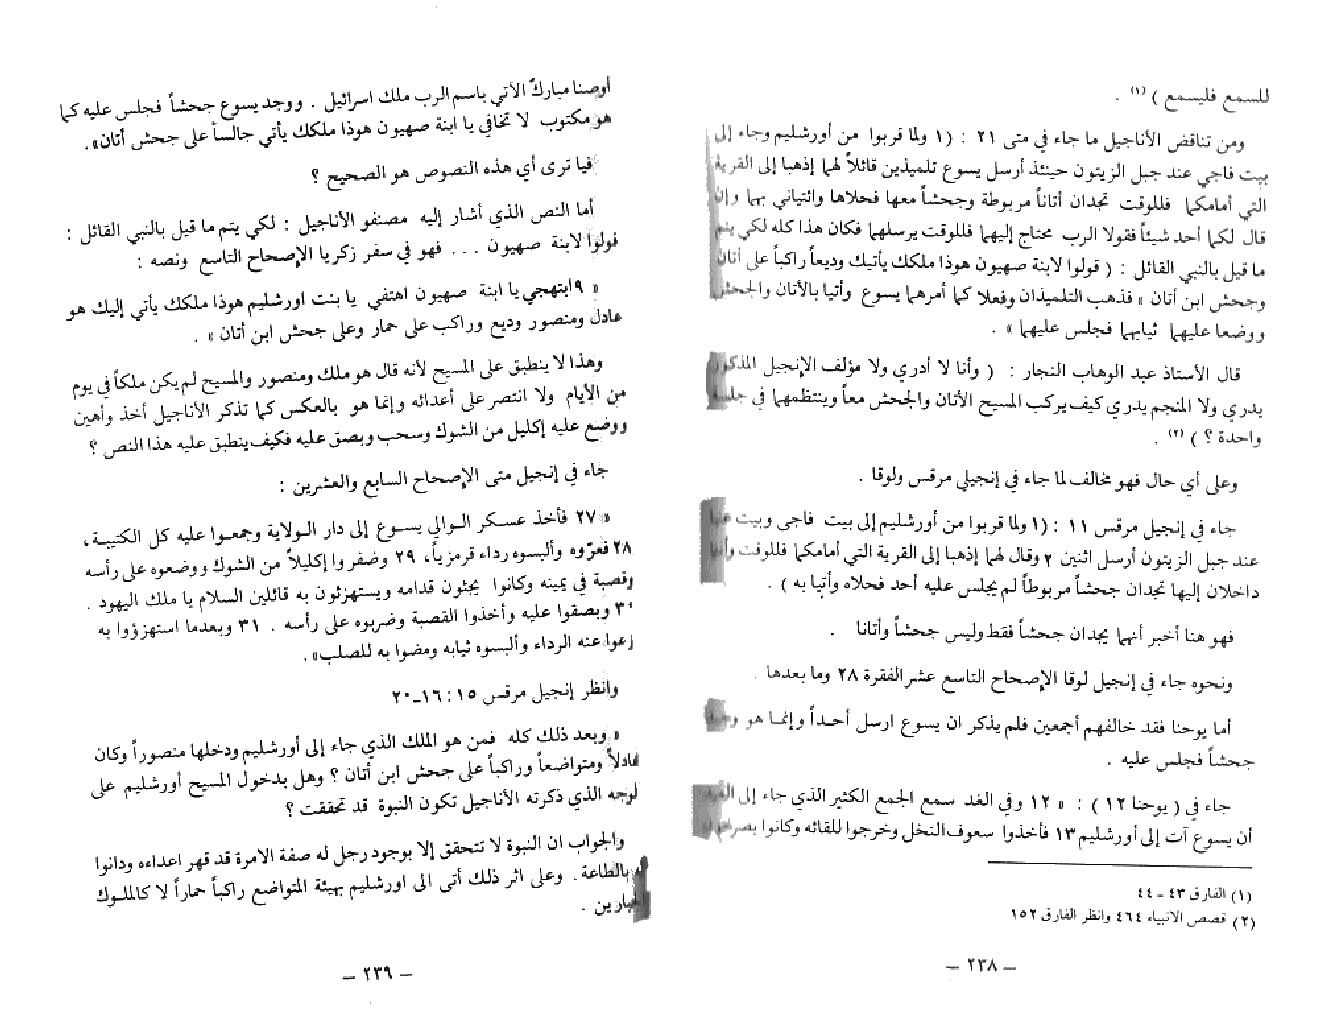 للسمع فليسمع ) (١) .
ومن تناقض الأناجيل ما جاء في متى ٢١ : (١ ولما قربوا من أورشليم وجاء إلى
بيت فاجي عند جبل الزيتون حينئذ أرسل يسوع تلميذين قائلاً لهما إذهبا إلى القرية
التي أمامكما فللوقت تجدان أتاناً مربوطة وجحشاً معها فحلاها وائتياني بهما وإن
قال لكما أحد شيئاً فقولا الرب محتاج إليهما فللوقت يرسلهما فكان هذا كله لكي يتم
ما قيل بالنبي القائل : ( قولوا لابنة صهيون هوذا ملكك يأتيك وديعاً راكباً على أتان
وجحش ابن أتان » فذهب التلميذان وفعلا كما أمرهما يسوع وأتيا بالأتان والجحش
ووضعا عليهما ثيابهما فجلس عليهما » .
قال الأستاذ عبد الوهاب النجار : ( وأنا لا أدري ولا مؤلف الإنجيل المذكور
يدري ولا المنجم يدري كيف يركب المسيح الأتان والجحش معاً وينتظمهما في جلسة
واحدة ؟ ) (٢) .
وعلى أي حال فهو مخالف لما جاء في إنجيلي مرقس ولوقا .
جاء في إنجيل مرقس ١١ : (١ ولما قربوا من أورشليم إلى بيت فاجي وبيت
عند جبل الزيتون أرسل اثنين ٢ وقال لهما إذهبا إلى القرية التي أمامكما فللوقت وأنتما
داخلان إليها تجدان جحشاً مربوطاً لم يجلس عليه أحد فحلاه وأتيا به ) .
فهو هنا أخبر أنهما يجدان جحشاً فقط وليس جحشاً وأتانا .
ونحوه جاء في إنجيل لوقا الإصحاح التاسع عشر الفقرة ٢٨ وما بعدها .
أما يوحنا فقد خالفهم أجمعين فلم يذكر ان يسوع ارسل أحداً وإنما هو وجد
جحشاً فجلس عليه .
جاء في ( يوحنا ١٢ ) : « ١٢ وفي الغد سمع الجمع الكثير الذي جاء إلى العيد
أن يسوع آت إلى أورشليم ١٣ فأخذوا سعوف النخل وخرجوا للقائه وكانوا يصرخون
(١) الفارق ٤٣ - ٤٤
(٢) قصص الانبياء ٤٦٤ وانظر الفارق ١٥٢
– ٢٣٨ –
أوصنا مباركٌ الأتي باسم الرب ملك اسرائيل . ووجد يسوع جحشاً فجلس عليه كما
هو مكتوب لا تخافي يا ابنة صهيون هوذا ملكك يأتي جالساً على جحش أتان» .
فيا ترى أي هذه النصوص هو الصحيح ؟
أما النص الذي أشار إليه مصنفو الأناجيل : لكي يتم ما قيل بالنبي القائل :
قولوا لابنة صهيون ... فهو في سفر زكريا الإصحاح التاسع ونصه :
« ٩ ابتهجي يا ابنة صهيون اهتفي يا بنت اورشليم هوذا ملكك يأتي إليك هو
عادل ومنصور وديع وراكب على حمار وعلى جحش ابن أتان » .
وهذا لا ينطبق على المسيح لأنه قال هو ملك ومنصور والمسيح لم يكن ملكاً في يوم
من الأيام ولا انتصر على أعدائه وإنما هو بالعكس كما تذكر الأناجيل أخذ وأهين
ووضع عليه إكليل من الشوك وسحب وبصق عليه فكيف ينطبق عليه هذا النص ؟
جاء في إنجيل متى الإصحاح السابع والعشرين :
« ٢٧ فأخذ عسكر الوالي يسوع إلى دار الولاية وجمعوا عليه كل الكتيبة ،
٢٨ فعرّوه وألبسوه رداء قرمزياً، ٢٩ وضفروا إكليلاً من الشوك ووضعوه على رأسه
وقصبة في يمينه وكانوا يجثون قدامه ويستهزئون به قائلين السلام يا ملك اليهود .
٣١ وبصقوا عليه وأخذوا القصبة وضربوه على رأسه . ٣١ وبعدما استهزؤوا به
زعوا عنه الرداء وألبسوه ثيابه ومضوا به للصلب» .
وانظر إنجيل مرقس ١٥ : ١٦–٢٠
« وبعد ذلك كله فمن هو الملك الذي جاء إلى أورشليم ودخلها منصوراً وكان
عادلاً ومتواضعاً وراكباً على جحش ابن أتان ؟ وهل بدخول المسيح أورشليم على
لوجه الذي ذكرته الأناجيل تكون النبوة قد تحققت ؟
والجواب ان النبوة لا تتحقق إلا بوجود رجل له صفة الامرة قد قهر اعداءه ودانوا
بالطاعة . وعلى اثر ذلك أتى الى اورشليم بهيئة المتواضع راكباً حماراً لا كالملوك
الجبارين .
– ٢٣٩ –